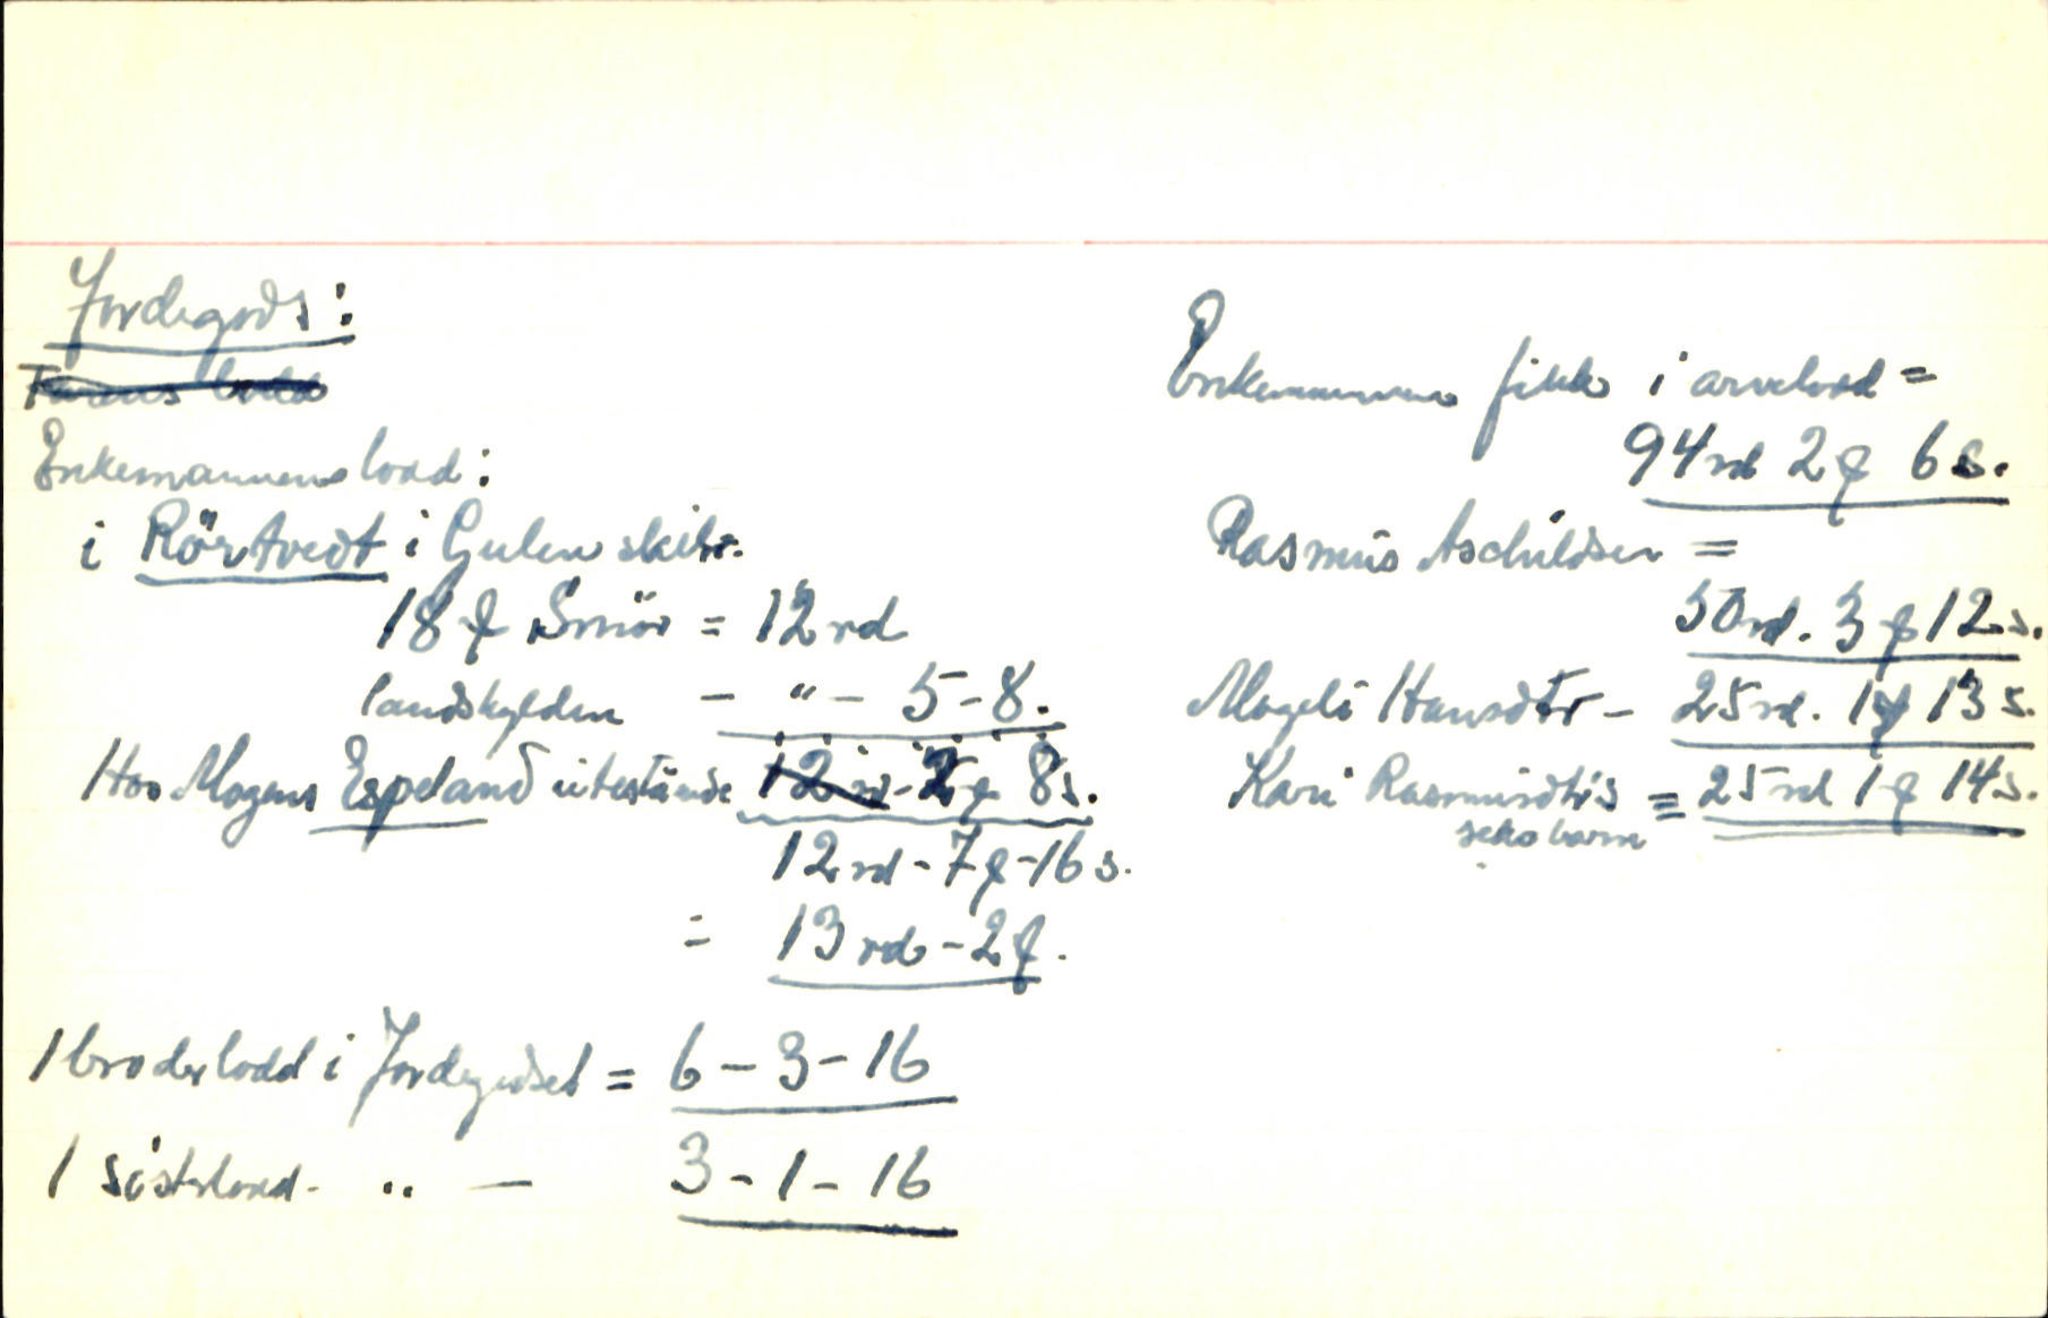 Jordegods:
Enkemannens lodd:
i Rörtvedt i Gulen skibr.
18 ₰ Smör = 12 rd
landskylden - " - 5 - 8.
Hos Mogens Espeland utestående 12 rd - 2 ₰ 8 s.
12 rd - 7 ₰ - 16 s.
= 13 rd - 2 ₰.
1 broderlodd i Jordegodset = 6 - 3 - 16
1 sösterlodd - " - 3 - 1 - 16
Enkemannen fikk i arvelodd =
94 rd 2 ₰ 6 s.
Rasmus Aschildsen =
50 rd. 3 ₰ 12 s.
Mageli Hansdtr - 25 rd. 1 ₰ 13 s.
Kari Rasmusdtr's = 25 rd 1 ₰ 14 s.
seks barn